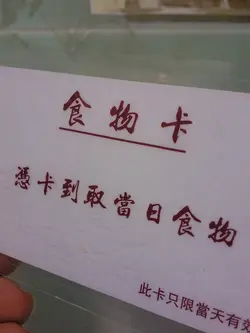 食物卡
憑卡到取當日食物
此卡只限當天有效